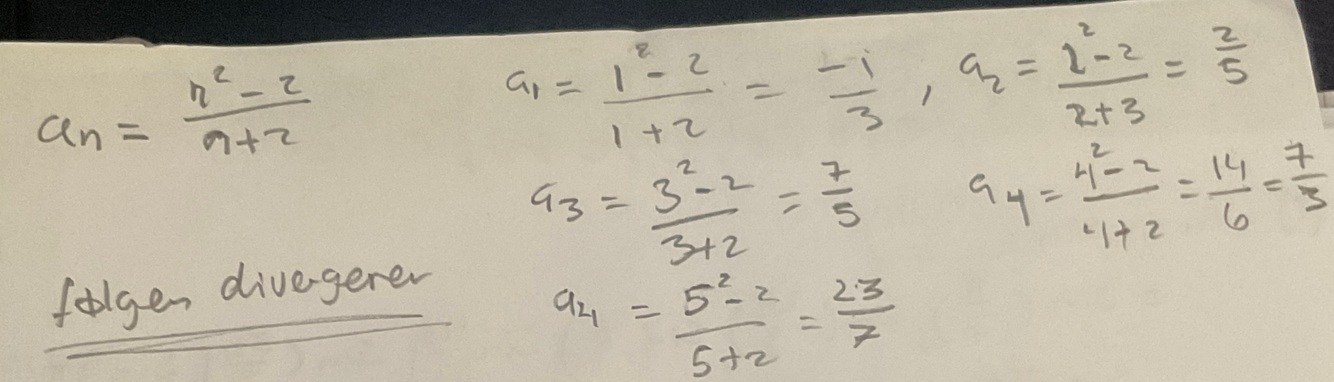 aₙ = (n² - 2)/(n + 2)
a₁ = (1² - 2)/(1 + 2) = -1/3 , a₂ = (2² - 2)/(2 + 3) = 2/5
a₃ = (3² - 2)/(3 + 2) = 7/5
a₄ = (4² - 2)/(4 + 2) = 14/6 = 7/3
følgen divergerer
a₄ = (5² - 2)/(5 + 2) = 23/7